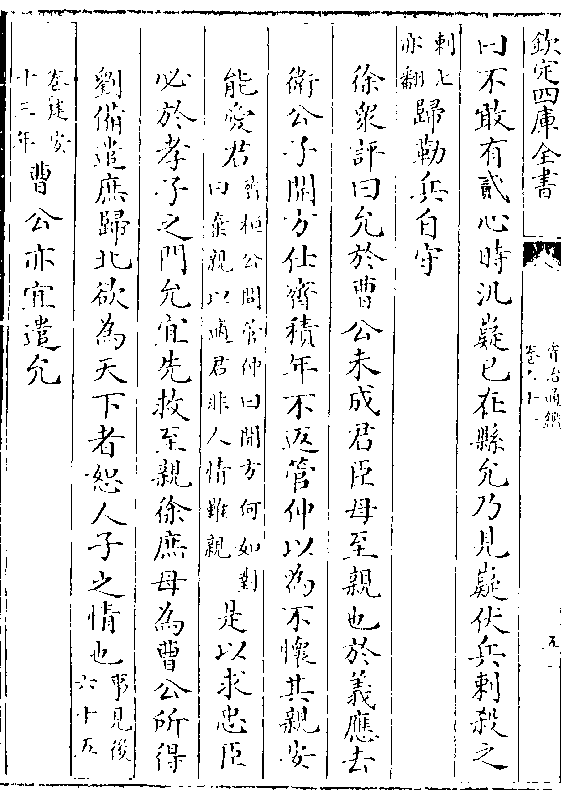 欽定四庫全書
資治通鑑
卷六十一
五
曰不敢有貳心時汎嶷已在縣允乃見嶷伏兵刺殺之
刺七
亦翻
歸勒兵自守
徐衆評曰允於曹公未成君臣母至親也於義應去
衛公子開方仕齊積年不返管仲以為不懷其親安
能愛君
齊桓公問管仲曰開方何如對
曰棄親以適君非人情難親
是以求忠臣
必於孝子之門允宜先救至親徐庶母為曹公所得
劉備遣庶歸北欲為天下者恕人子之情也
事見後
六十五
卷建安
十三年
曹公亦宜遣允